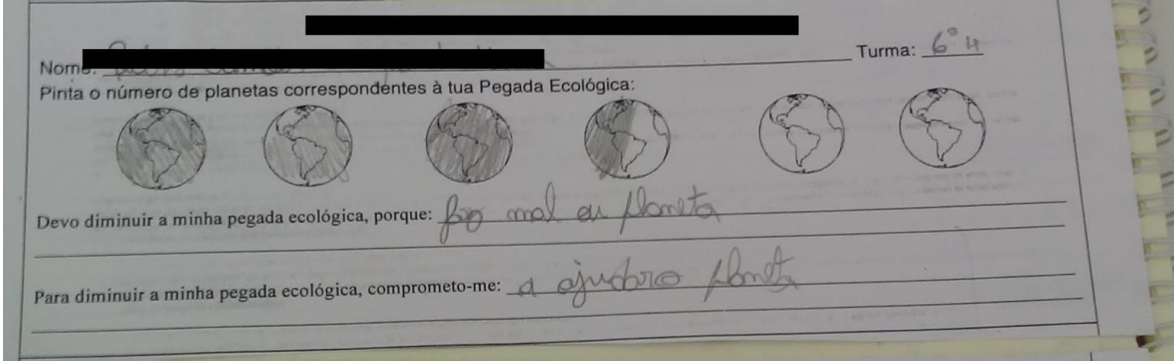 Nome: Turma: 6º 4
Pinta o número de planetas correspondentes à tua Pegada Ecológica:
Devo diminuir a minha pegada ecológica, porque: faz mal au planeta
Para diminuir a minha pegada ecológica, comprometo-me: a ajudar o planeta